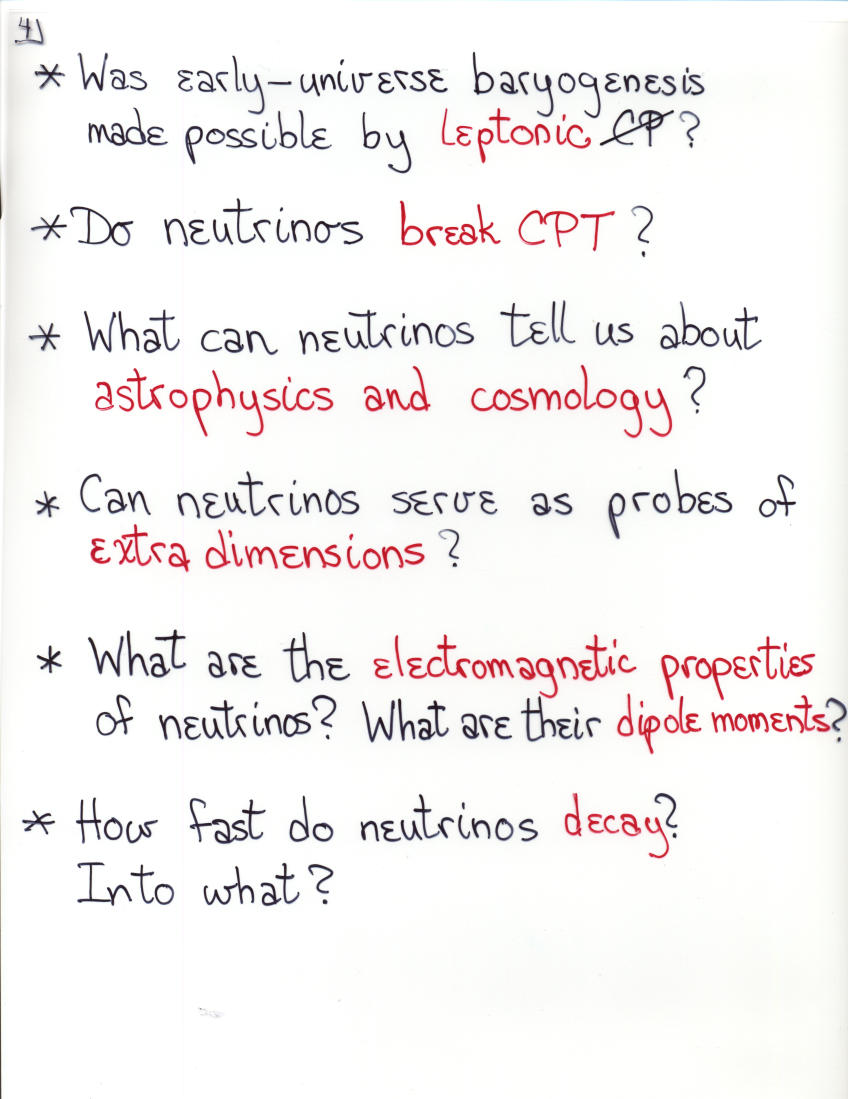 4
* Was early-universe baryogenesis
made possible by Leptonic C̸P̸?
* Do neutrinos break CPT?
* What can neutrinos tell us about
astrophysics and cosmology?
* Can neutrinos serve as probes of
extra dimensions?
* What are the electromagnetic properties
of neutrinos? What are their dipole moments?
* How fast do neutrinos decay?
Into what?